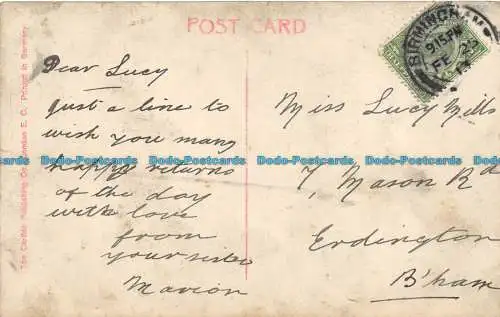 POST CARD
BIRMINGHAM
915PM
FE 23
13
Dear Lucy
Just a line to
wish you many
happy returns
of the day
with love
from
your sister
Marion
Miss Lucy Mills
7, Mason Rd
Erdington
B'ham
Dodo-Postcards Dodo-Postcards Dodo-Postcards Dodo-Postcards
London E. C. Printed in Germany